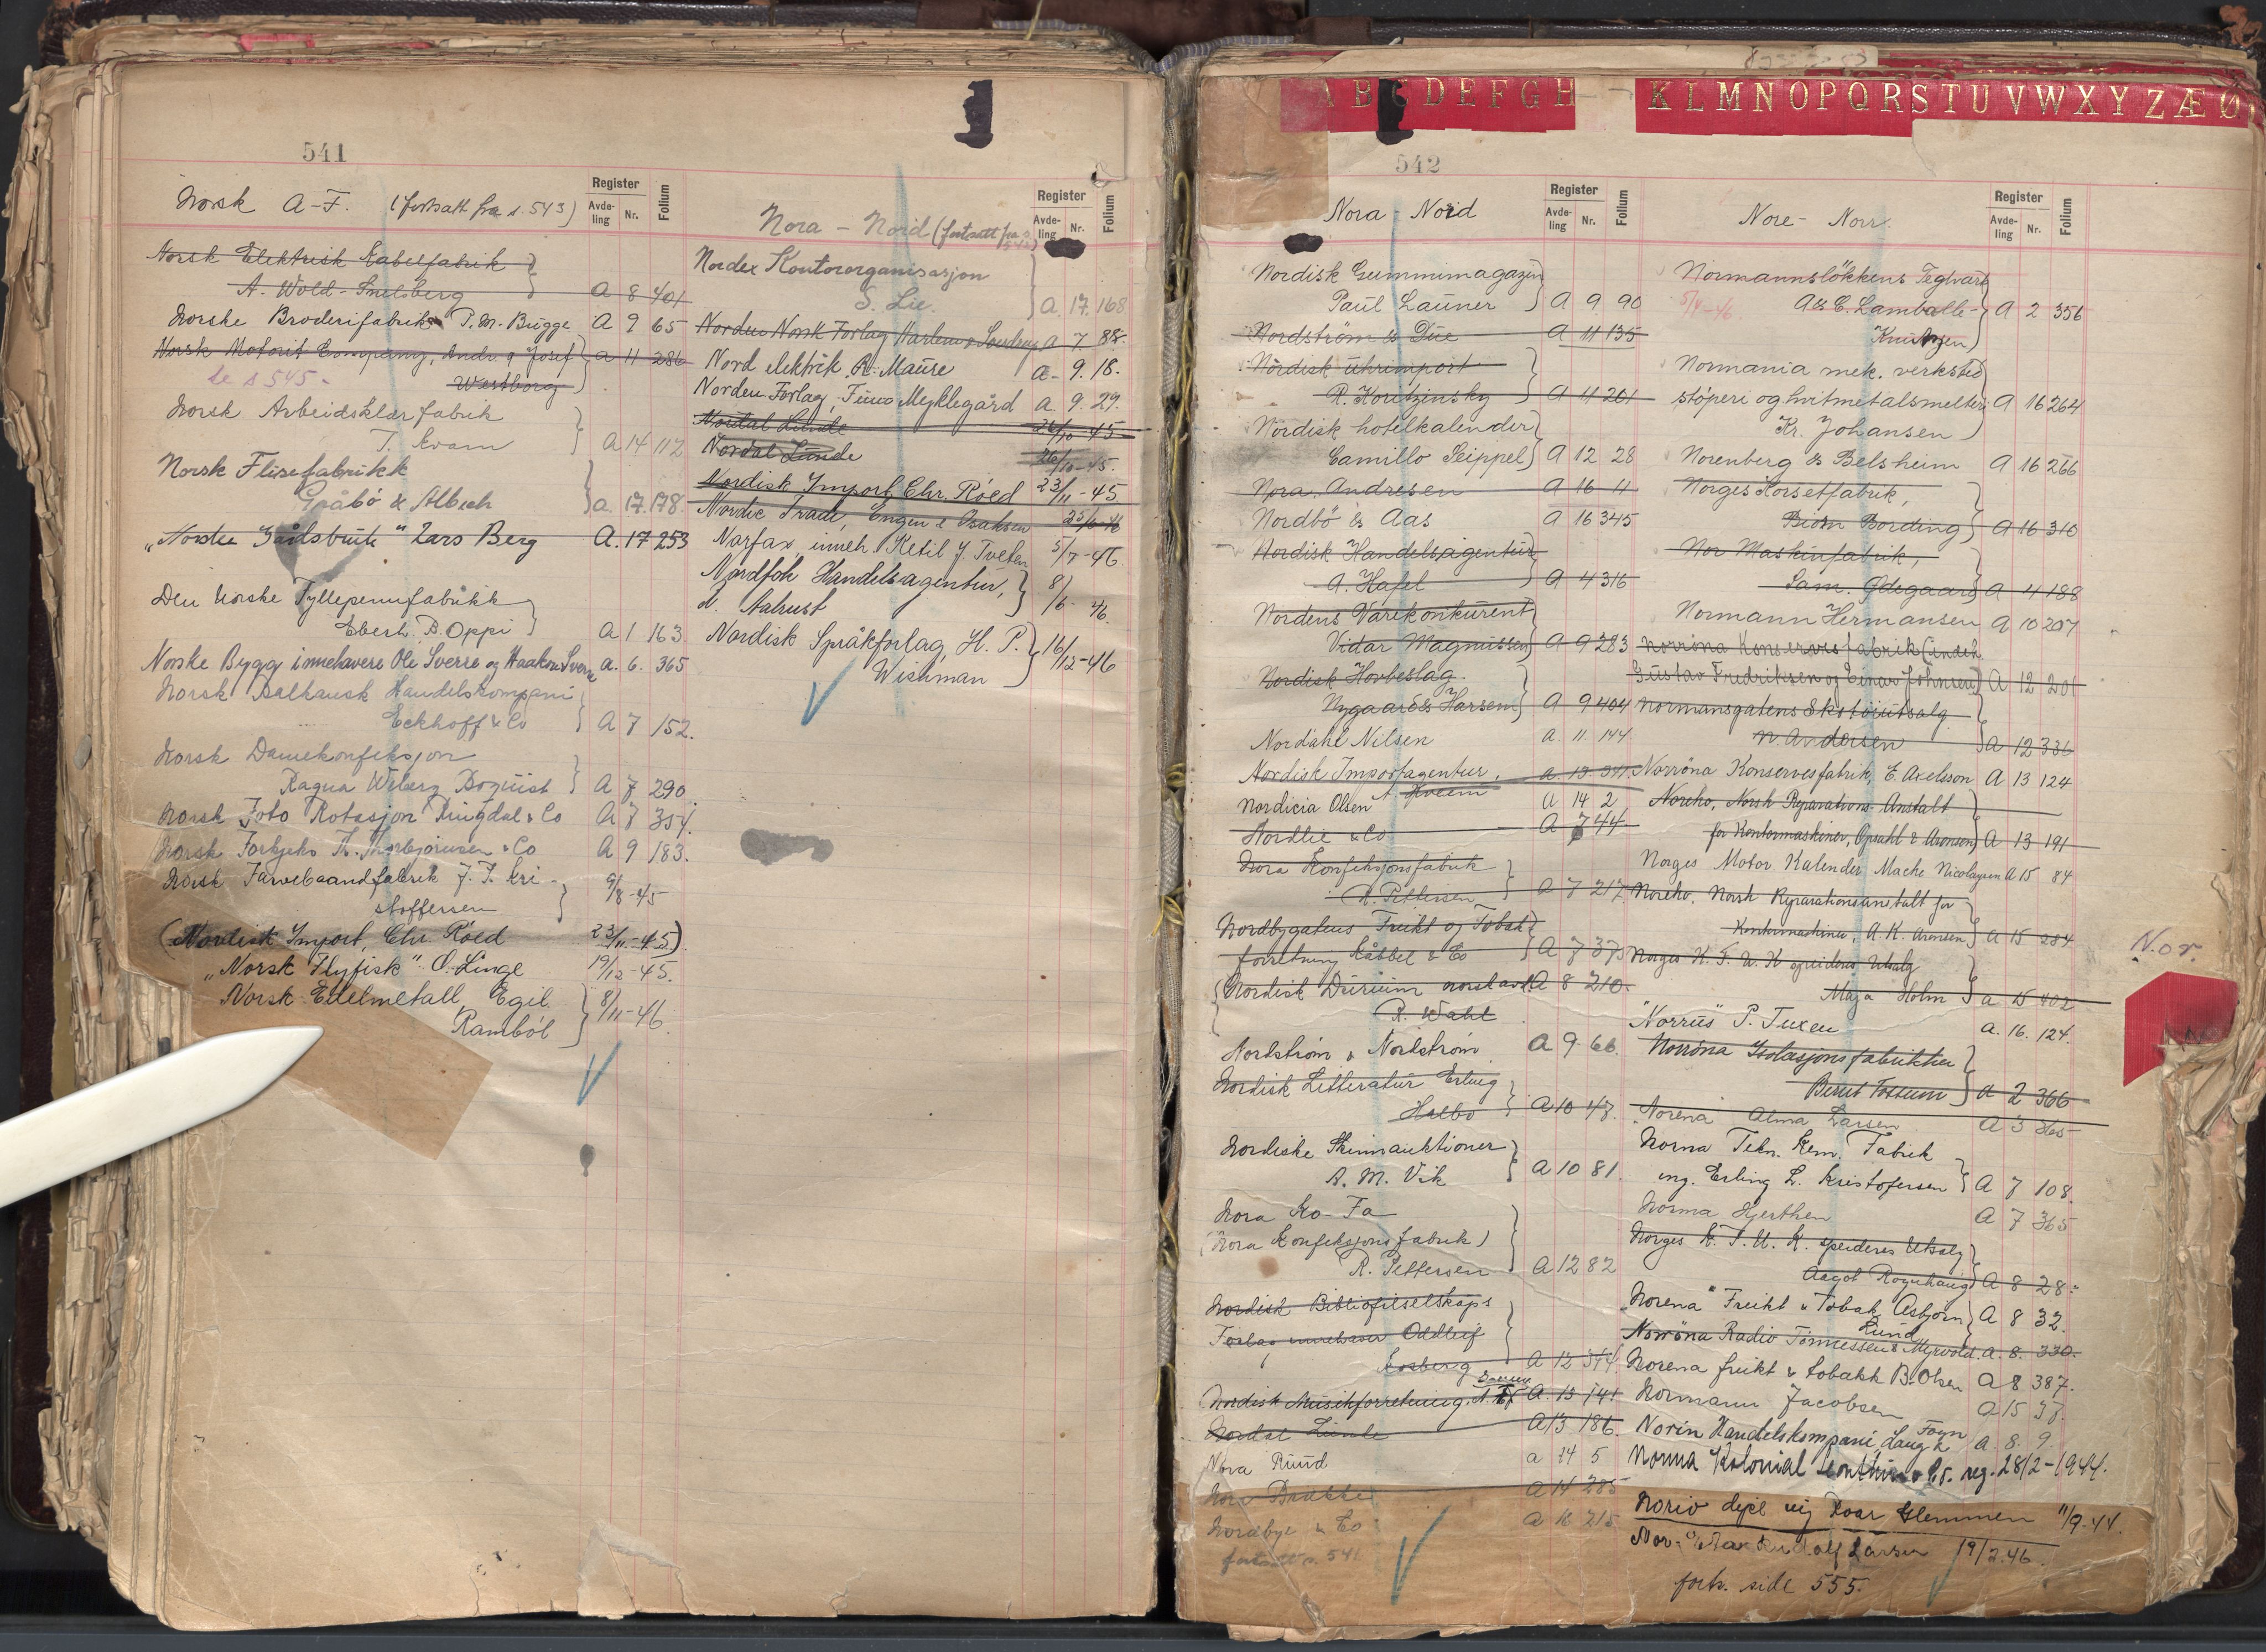 541
Norsk A-F. (fortsatt fra s. 543)
Register
Avde-
ling Nr. Folium
Norsk Elektrisk Kabelfabrik
A. Wold-Snelsberg A 8 401
Norske Broderifabrik P. M. Bugge A 9 65
Norsk Motorit Company, Andr. & Josef A 11 286
se s 545. Westborg
Norsk Arbeidsklær fabrik
T. Kvam A 14 112
Norsk Flisefabrikk
Gråbö & Albech a. 17. 178.
"Norske Gårdsbruk" Lars Berg A. 17 253
Den Norske Fyllepennfabrikk
Ebert. B. Oppi A 1 163.
Norske Bygg innehavere Ole Sverre og Haakon Sverre a. 6. 365
Norsk Balkansk Handelskompani
Eckhoff & Co A 7 152.
Norsk Damekonfeksjon
Ragna Wiberg Boquist A 7 290
Norsk Foto Rotasjon Ringdal & Co A 7 354.
Norsk Forkjeks K. Thorbjørnsen & Co A 9 183.
Norsk Farvebaandfabrik J. T. Kri-
stoffersen 9/8-45
(Nordisk Import, Chr. Röed 23/11-45)
"Norsk Flyfisk" O. Linge 19/12-45.
Norsk Edelmetall, Egil
Ramböl 8/11-46.
Nora - Nord (fortsatt fra s. 542)
Register
Avde-
ling Nr. Folium
Nordex Kontororganisasjon
S. Lie. A. 17. 168
Norden Norsk Forlag, A 7. 88.
Nord elektrik R. Maure a- 9. 18.
Norden Forlag, Finn Myklegård a. 9. 29.
Nordal Lunde 26/10-45
Nordal Lunde 26/10-45.
Nordisk Import, Chr. Röed 23/11-45
Nordic Trade, Engen & Isaksen 25/6-46
Norfax, inneh. Ketil J. Tveten 5/7-46.
Nordfoh Handelsagentur,
d. Aahust 8/6-46.
Nordisk Språkforlag, H. P.
Wishman 16/12-46
A B C D E F G H K L M N O P Q R S T U V W X Y Z Æ Ø
542
Nora - Nord
Register
Avde-
ling Nr. Folium
Nordisk Gummimagazin
Paul Launer A 9 90
Nordström & Due A 11 135
Nordisk Uhrimport
R. Koritzinsky A 11 201
Nordisk hotelkalender
Camillo Seippel A 12 28
Nora Andresen A 16 11
Nordbö & Aas A 16 345
Nordisk Handelsagentur
A. Hafel A 4 316
Nordens Varekonkurent
Vidar Magnussen A 9 283
Nordisk Hovbeslag.
Nygaard & Harsem A 9 404
Nordahl Nilsen a. 11. 144.
Nordisk Importagentur, a. 13. 341.
Kveim
Nordicia Olsen A 14 2
Nordlie & Co A 7 44
Nora Konfeksjonsfabrik
R. Pettersen A 7 217
Nordbygatens Frukt og Tobak
forretning Kåbbel & Co A 7 373
(Nordisk Durium norsk avd A 8 210.
R. Wahl
Nordstrøm & Nordstrøm A 9 66.
Nordisk Litteratur Erling
Halbo A 10 47.
Nordiske Skinnauktioner
A. M. Vik A 10 81.
Nora Ko-Fa
(Nora Konfeksjonsfabrik)
R. Pettersen A 12 82
Nordisk Bibliofilselskaps
Forlag innehaver Oddleif
Kosberg A 12 344
Nordisk Musikforretning. A 13 141
Nordal Lunde A 13 186.
Nora Ruud a 14 5
Nora Brakke A 14 285
Nordbye & Co a 16 215
fortsatt s. 541
Nore - Norr.
Register
Avde-
ling Nr. Folium
Normannslökkens Teglverk
5/4-46 A & C. Lamballe-
Knutzen A 2 356
Normania mek. verksted
støperi og hvitmetalsmelteri A 16 264
Kr. Johansen
Norenberg & Belsheim A 16 266
Norges Korsetfabrik,
Björn Bording A 16 310
Nor Maskinfabrik,
Sam. Ödegaard A 4 188
Normann Hermansen A 10 207
Norröna Konservesfabrik (indeh.
Gustav Fredriksen og Einar Johnsen) A 12 201
Normannsgatens Skotöiutsalg
N. Andersen A 12 336
Norröna Konservesfabrik, E. Axelsson A 13 124
Noreko, Norsk Reparations-Anstalt
for Kontormaskiner, Opsahl & Aronsen A 13 191
Norges Motor Kalender Macke Nicolaysen A 15 84
Noreko. Norsk Reparationsanstalt for
Kontormaskiner, A. K. Aronsen A 15 284
Norges K. F. U. K speideres Utsalg
Maja Holm a 15 402
"Norrus" P. Tuxen a. 16. 124.
Norröna Isolasjonsfabrikker
Bernt Tottum A 2 366
"Norena" Alma Larsen A 3 365
Norna Tekn. Kem. Fabrik
ing. Erling L. Kristofersen A 7 108.
Norma Hjerthen A 7 365
Norges K. F. U. K. speideres Utsalg
Aagot Rognhaug A 8 28.
"Norena" Frukt & Tobak Asbjørn
Lund A 8 32.
Norröna Radio Tönnessen & Myrvold. A. 8. 330.
Norena frukt & tobakk B. Olsen A 8 387.
Normann Jacobsen A 15 37.
Norin Handelskompani, A. 8. 9
Norma Kolonial reg. 28/2-1944.
Norio dipl ing Roar Glemmen 11/9-44.
Nor- Rudolf Larsen 19/2.46.
forts. side 555.
Nor.